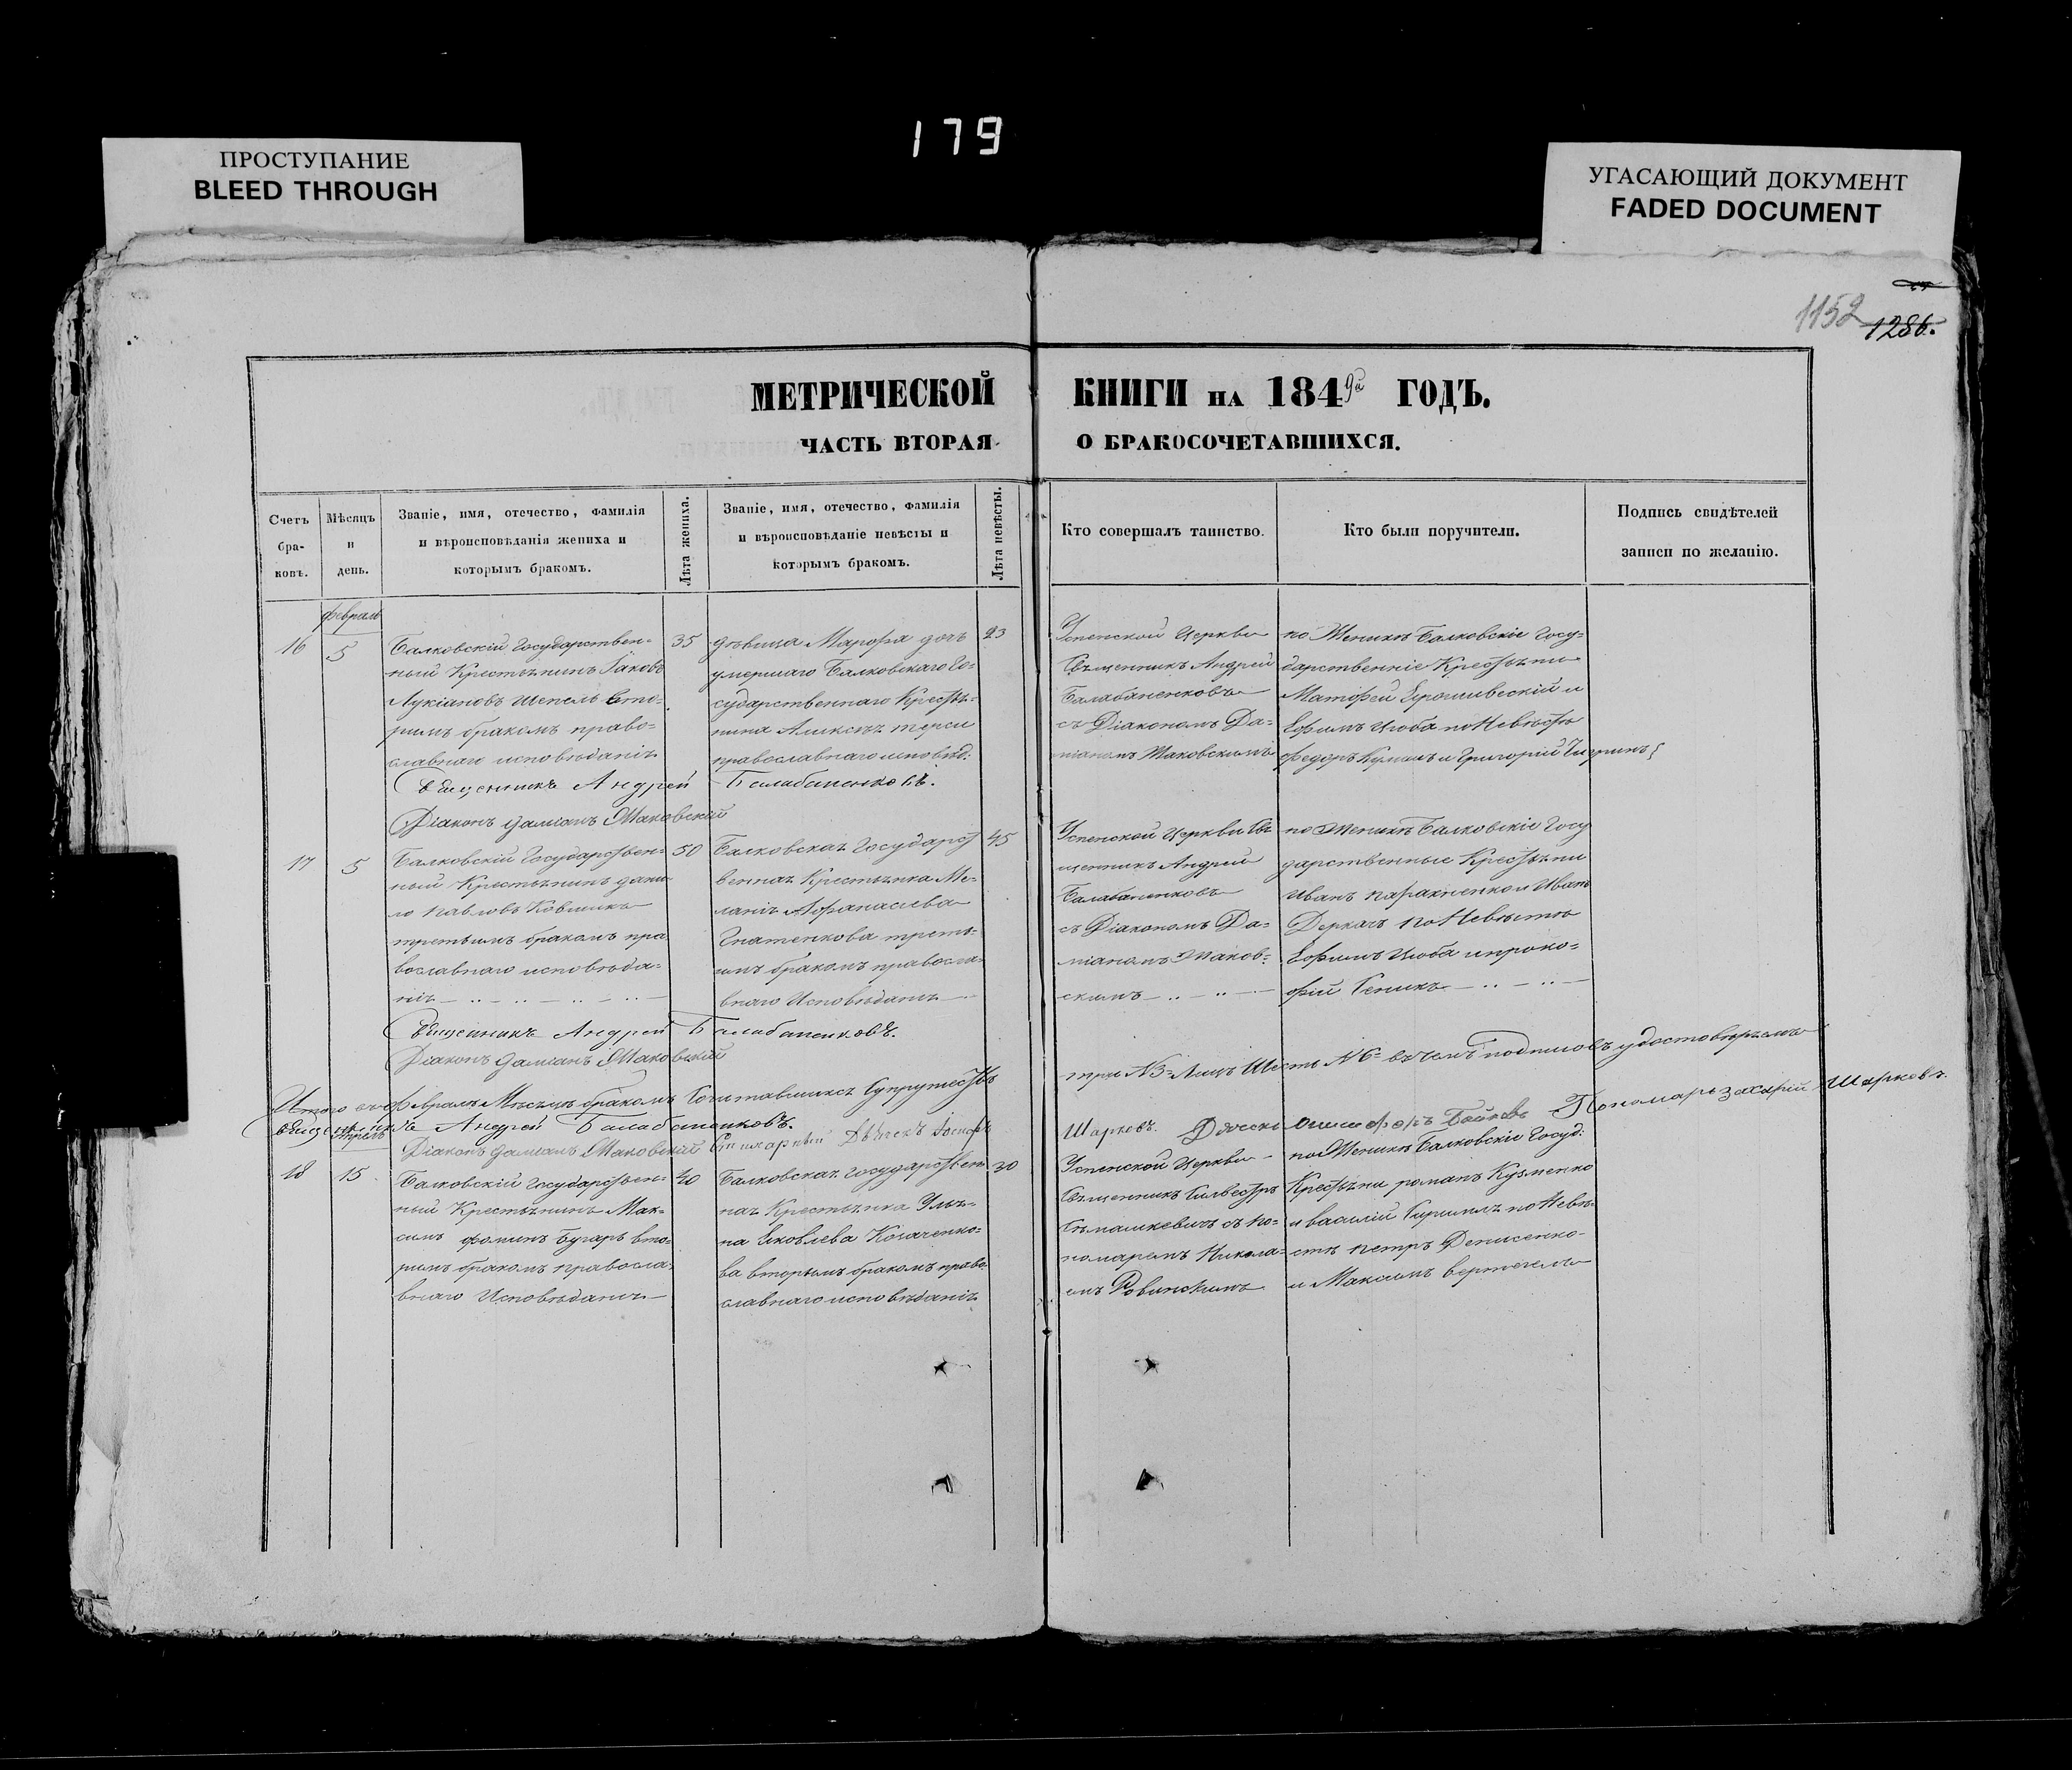 179
ПРОСТУПАНИЕ
BLEED THROUGH
УГАСАЮЩИЙ ДОКУМЕНТ
FADED DOCUMENT
1152 1286.
МЕТРИЧЕСКОЙ КНИГИ НА 1849й ГОДЪ.
ЧАСТЬ ВТОРАЯ О БРАКОСОЧЕТАВШИХСЯ.
Счетъ бра-ковъ.
Мѣсяцъ и день.
Званіе, имя, отечество, фамилія
и вѣроисповѣданія жениха и
которымъ бракомъ.
Лѣта жениха.
Званіе, имя, отечество, фамилія
и вѣроисповѣданіе невѣсты и
которымъ бракомъ.
Лѣта невѣсты.
Кто совершалъ таинство.
Кто были поручители.
Подпись свидѣтелей
записи по желанію.
февраль
16
5
Балковскій Государствен-
ный Крестьянинъ Іаковъ
Лукіановъ Шепель вто-
рымъ бракомъ право-
славнаго исповѣданія
35
дѣвица Марфа дочь
умершаго Балковскаго Го-
сударственнаго Крестья-
нина Алексѣя
православнаго исповѣд:
23
Успенской Церкви
Священникъ Андрей
Балабаненковъ
съ Діакономъ Да-
міаномъ Маковскимъ
по Женихѣ Балковскіе Госу-
дарственніе Крестьяни
Матфей и
Ефимъ Цюба по Невѣстѣ
Федоръ и Григорій
Священникъ Андрей Балабаненковъ.
Діаконъ Даміанъ Маковскій
17
5
Балковскій Государствен-
ный Крестьянинъ Дани-
ло Павловъ Ковшикъ
третьимъ бракомъ пра-
вославнаго исповѣда-
нія
50
Балковская Государст
венная Крестьянка Ме-
ланія Афанасиева
Гнатенкова треть-
имъ бракомъ правосла-
внаго Исповѣданія
45
Успенской Церкви Свя
щенникъ Андрей
Балабаненковъ
съ Діакономъ Да-
міаномъ Маков-
скимъ
по Женихѣ Балковскіе Госу
дарственные Крестьяни
Иванъ и Иванъ
Деркачъ по Невѣстѣ
Ефимъ Цюба и Проко-
фій Сеникъ
Священникъ Андрей Балабаненковъ.
Діаконъ Даміанъ Маковскій
Итого въ Февралѣ Мѣсяцѣ бракомъ Сочитавшихся Супружествъ три №3= Лицъ Шесть №6= въ чемъ подписомъ удостовѣряемъ
Священникъ Андрей Балабаненковъ.
Діаконъ Даміанъ Маковскій Дьячекъ Іосифъ Шаркевъ. Пономарь Захарій Шаркевъ.
Апрѣль
18
15
Балковскій Государствен-
ный Крестьянинъ Мак-
симъ Фоминъ Бугаръ вто-
рымъ бракомъ правосла-
внаго Исповѣданія
40
Балковская Государствен
ная Крестьянка Улья-
на Яковлева Козаченко-
ва вторымъ бракомъ право-
славнаго исповѣданія
30
Успенской Церкви
Священникъ Сильвестръ
съ По-
номаремъ Никола-
емъ Ровинскимъ
по Женихѣ Балковскіе Госуд:
Крестьяни Романъ Кузменко
и Василій по Невѣ-
стѣ Петръ Денисенко
и Максимъ